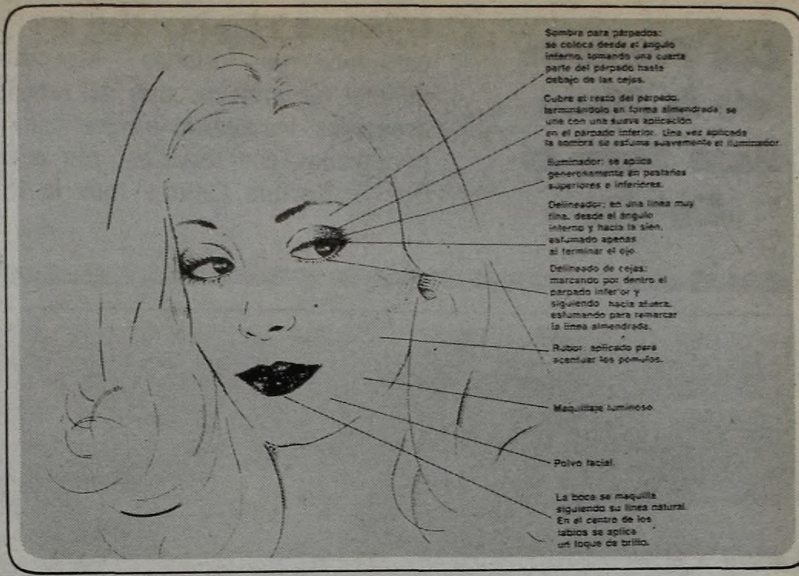 Sombra para párpados:
se coloca desde el ángulo
interno, tomando una cuarta
parte del párpado hasta
debajo de las cejas.
Cubre el resto del párpado,
terminándolo en forma almendrada; se
une con una suave aplicación
en el párpado inferior. Una vez aplicada
la sombra se esfuma suavemente el iluminador.
Iluminador: se aplica
generosamente en pestañas
superiores e inferiores.
Delineador: en una línea muy
fina, desde el ángulo
interno y hacia la sien,
esfumado apenas
al terminar el ojo.
Delineado de cejas:
marcando por dentro el
párpado inferior y
siguiendo hacia afuera,
esfumando para remarcar
la línea almendrada.
Rubor: aplicado para
acentuar los pómulos.
Maquillaje luminoso.
Polvo facial.
La boca se maquilla
siguiendo su línea natural.
En el centro de los
labios se aplica
un toque de brillo.